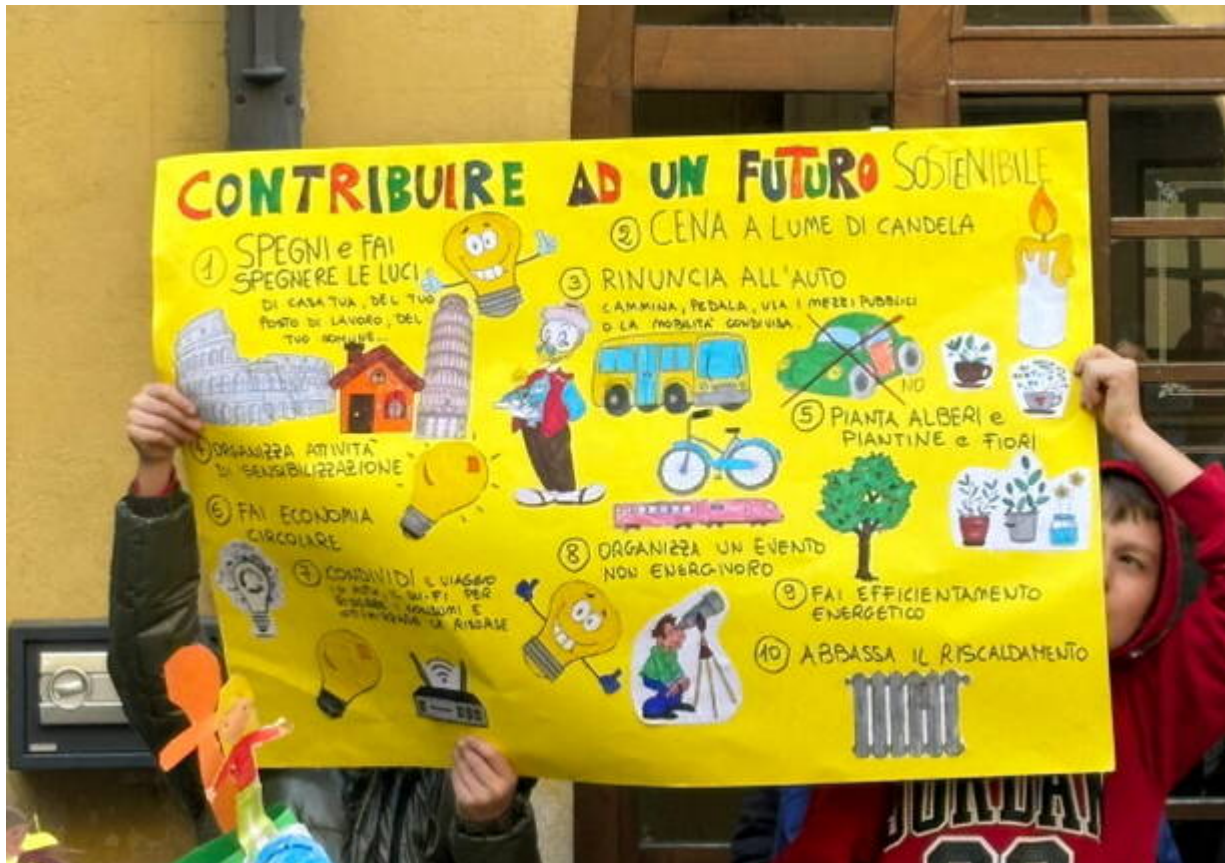 CONTRIBUIRE AD UN FUTURO SOSTENIBILE
1 SPEGNI e FAI
SPEGNERE LE LUCI
DI CASA TUA, DEL TUO
POSTO DI LAVORO, DEL
TUO COMUNE...
2 CENA A LUME DI CANDELA
3 RINUNCIA ALL'AUTO
CAMMINA, PEDALA, USA I MEZZI PUBBLICI
O LA MOBILITÀ CONDIVISA.
NO
4 ORGANIZZA ATTIVITÀ
DI SENSIBILIZZAZIONE
5 PIANTA ALBERI e
PIANTINE e FIORI
6 FAI ECONOMIA
CIRCOLARE
7 CONDIVIDI IL VIAGGIO
IL WI-FI PER
I CONSUMI E
LE RISORSE
8 ORGANIZZA UN EVENTO
NON ENERGIVORO
9 FAI EFFICIENTAMENTO
ENERGETICO
10 ABBASSA IL RISCALDAMENTO
JORDAN